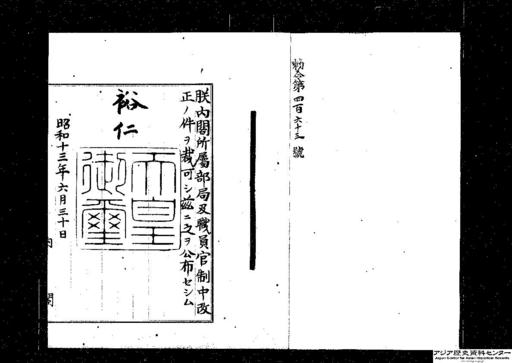 勅令第四百六十三號
朕内閣所屬部局及職員官制中改
正ノ件ヲ裁可シ茲ニ之ヲ公布セシム
裕仁
天皇御璽
昭和十三年六月三十日
内閣
アジア歴史資料センター
Japan Center for Asian Historical Records